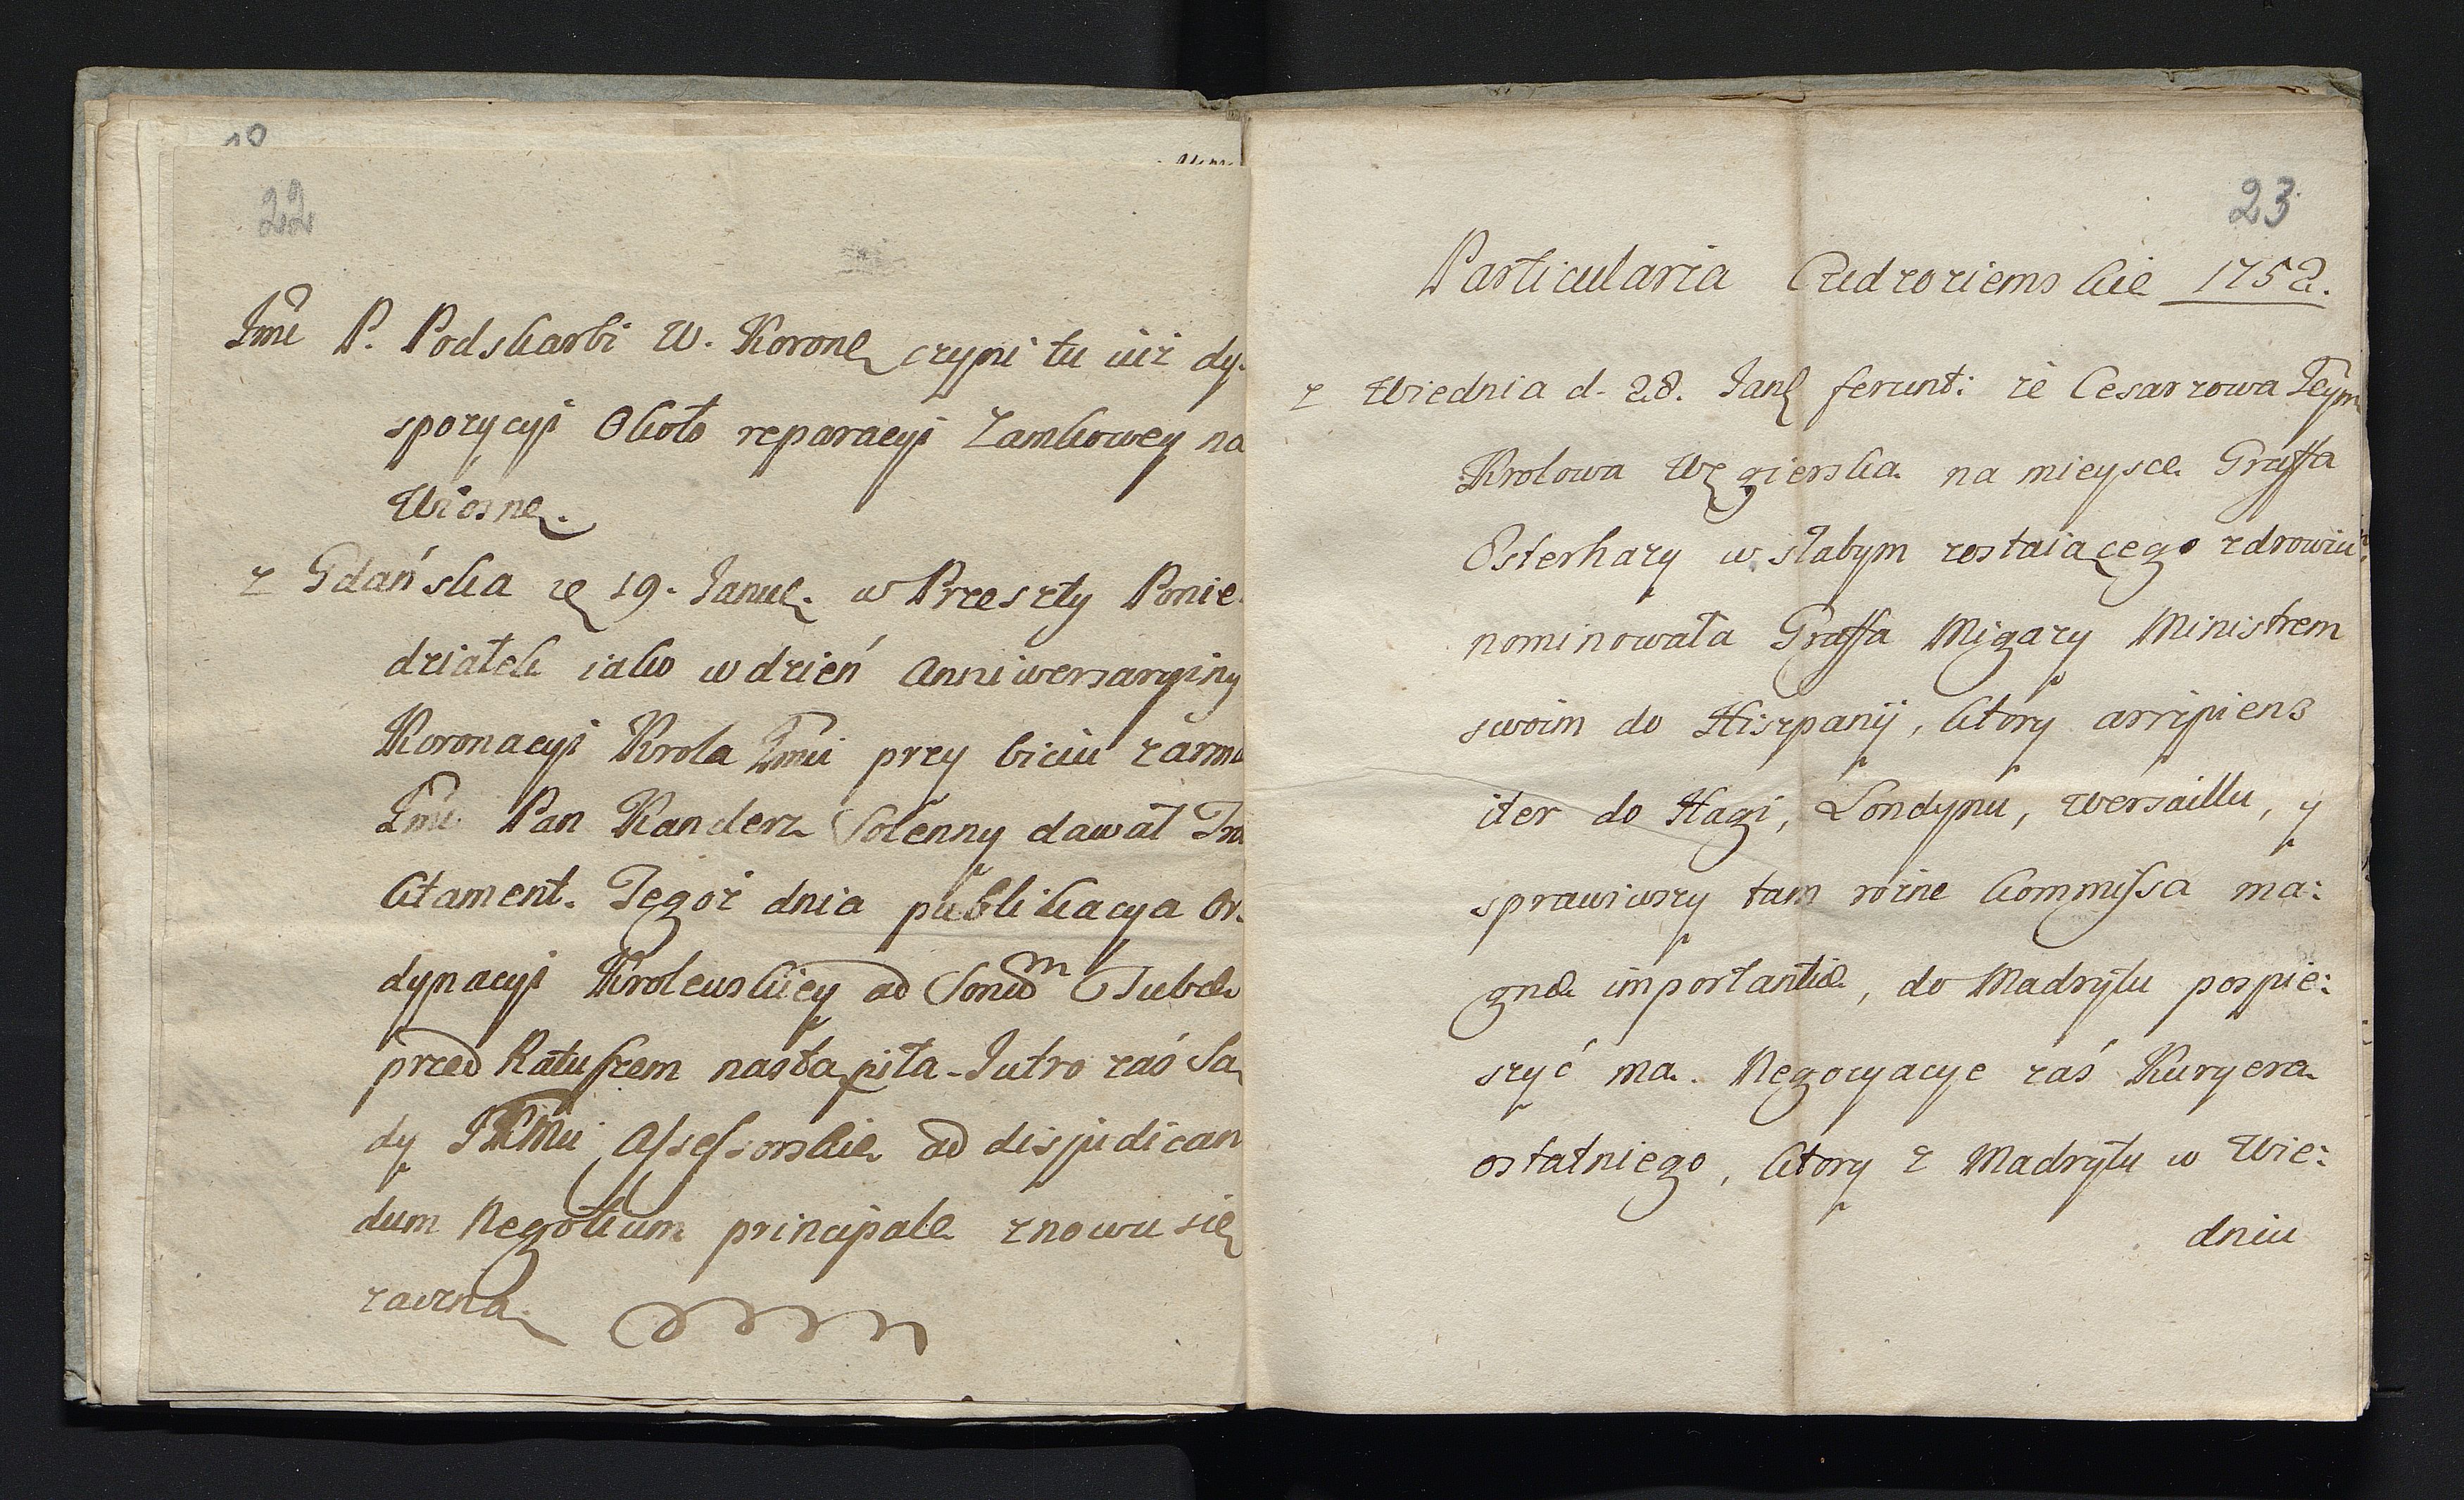 22
Jmć P. Podskarbi W. Koronę czyni tu iuż dy-
spozycyi Około reparacyi Zamkowey na
Wiosnę.
z Gdańska de 19. Janue. w Przeszły Ponie-
działek iako w dzień Anniwersaryiny
Koronacyi Krola Jmci przy biciu z armat
Jmć Pan Kanclerz Solenny dawał Tra
ktament. Tegoż dnia publikacya Or-
dynacyi Krolewskiey ad Sonum Tubae
przed Ratuszem nastąpiła. Jutro zaś Są
dy JKMci Assessorskie ad disjudican
dum Negotium principale znowu się
zaczną.
23
Particularia Cudzoziemskie 1752.
z Wiednia d. 28. Jany ferunt: że Cesarzowa Jeym
Krolowa Węgierska na mieysce Graffa
Osterhazy w słabym zostaiącego zdrowiu
nominowała Graffa Migazy Ministrem
swoim do Hiszpanij, ktory arripiens
iter do Hagi, Londynu, Wersaillu, y
sprawiwszy tam rożne kommissa ma:
gnae importantiae, do Madrytu pospie:
szyć ma. Negocyacye zaś Kuryera
ostatniego, ktory z Madrytu w Wie:
dniu